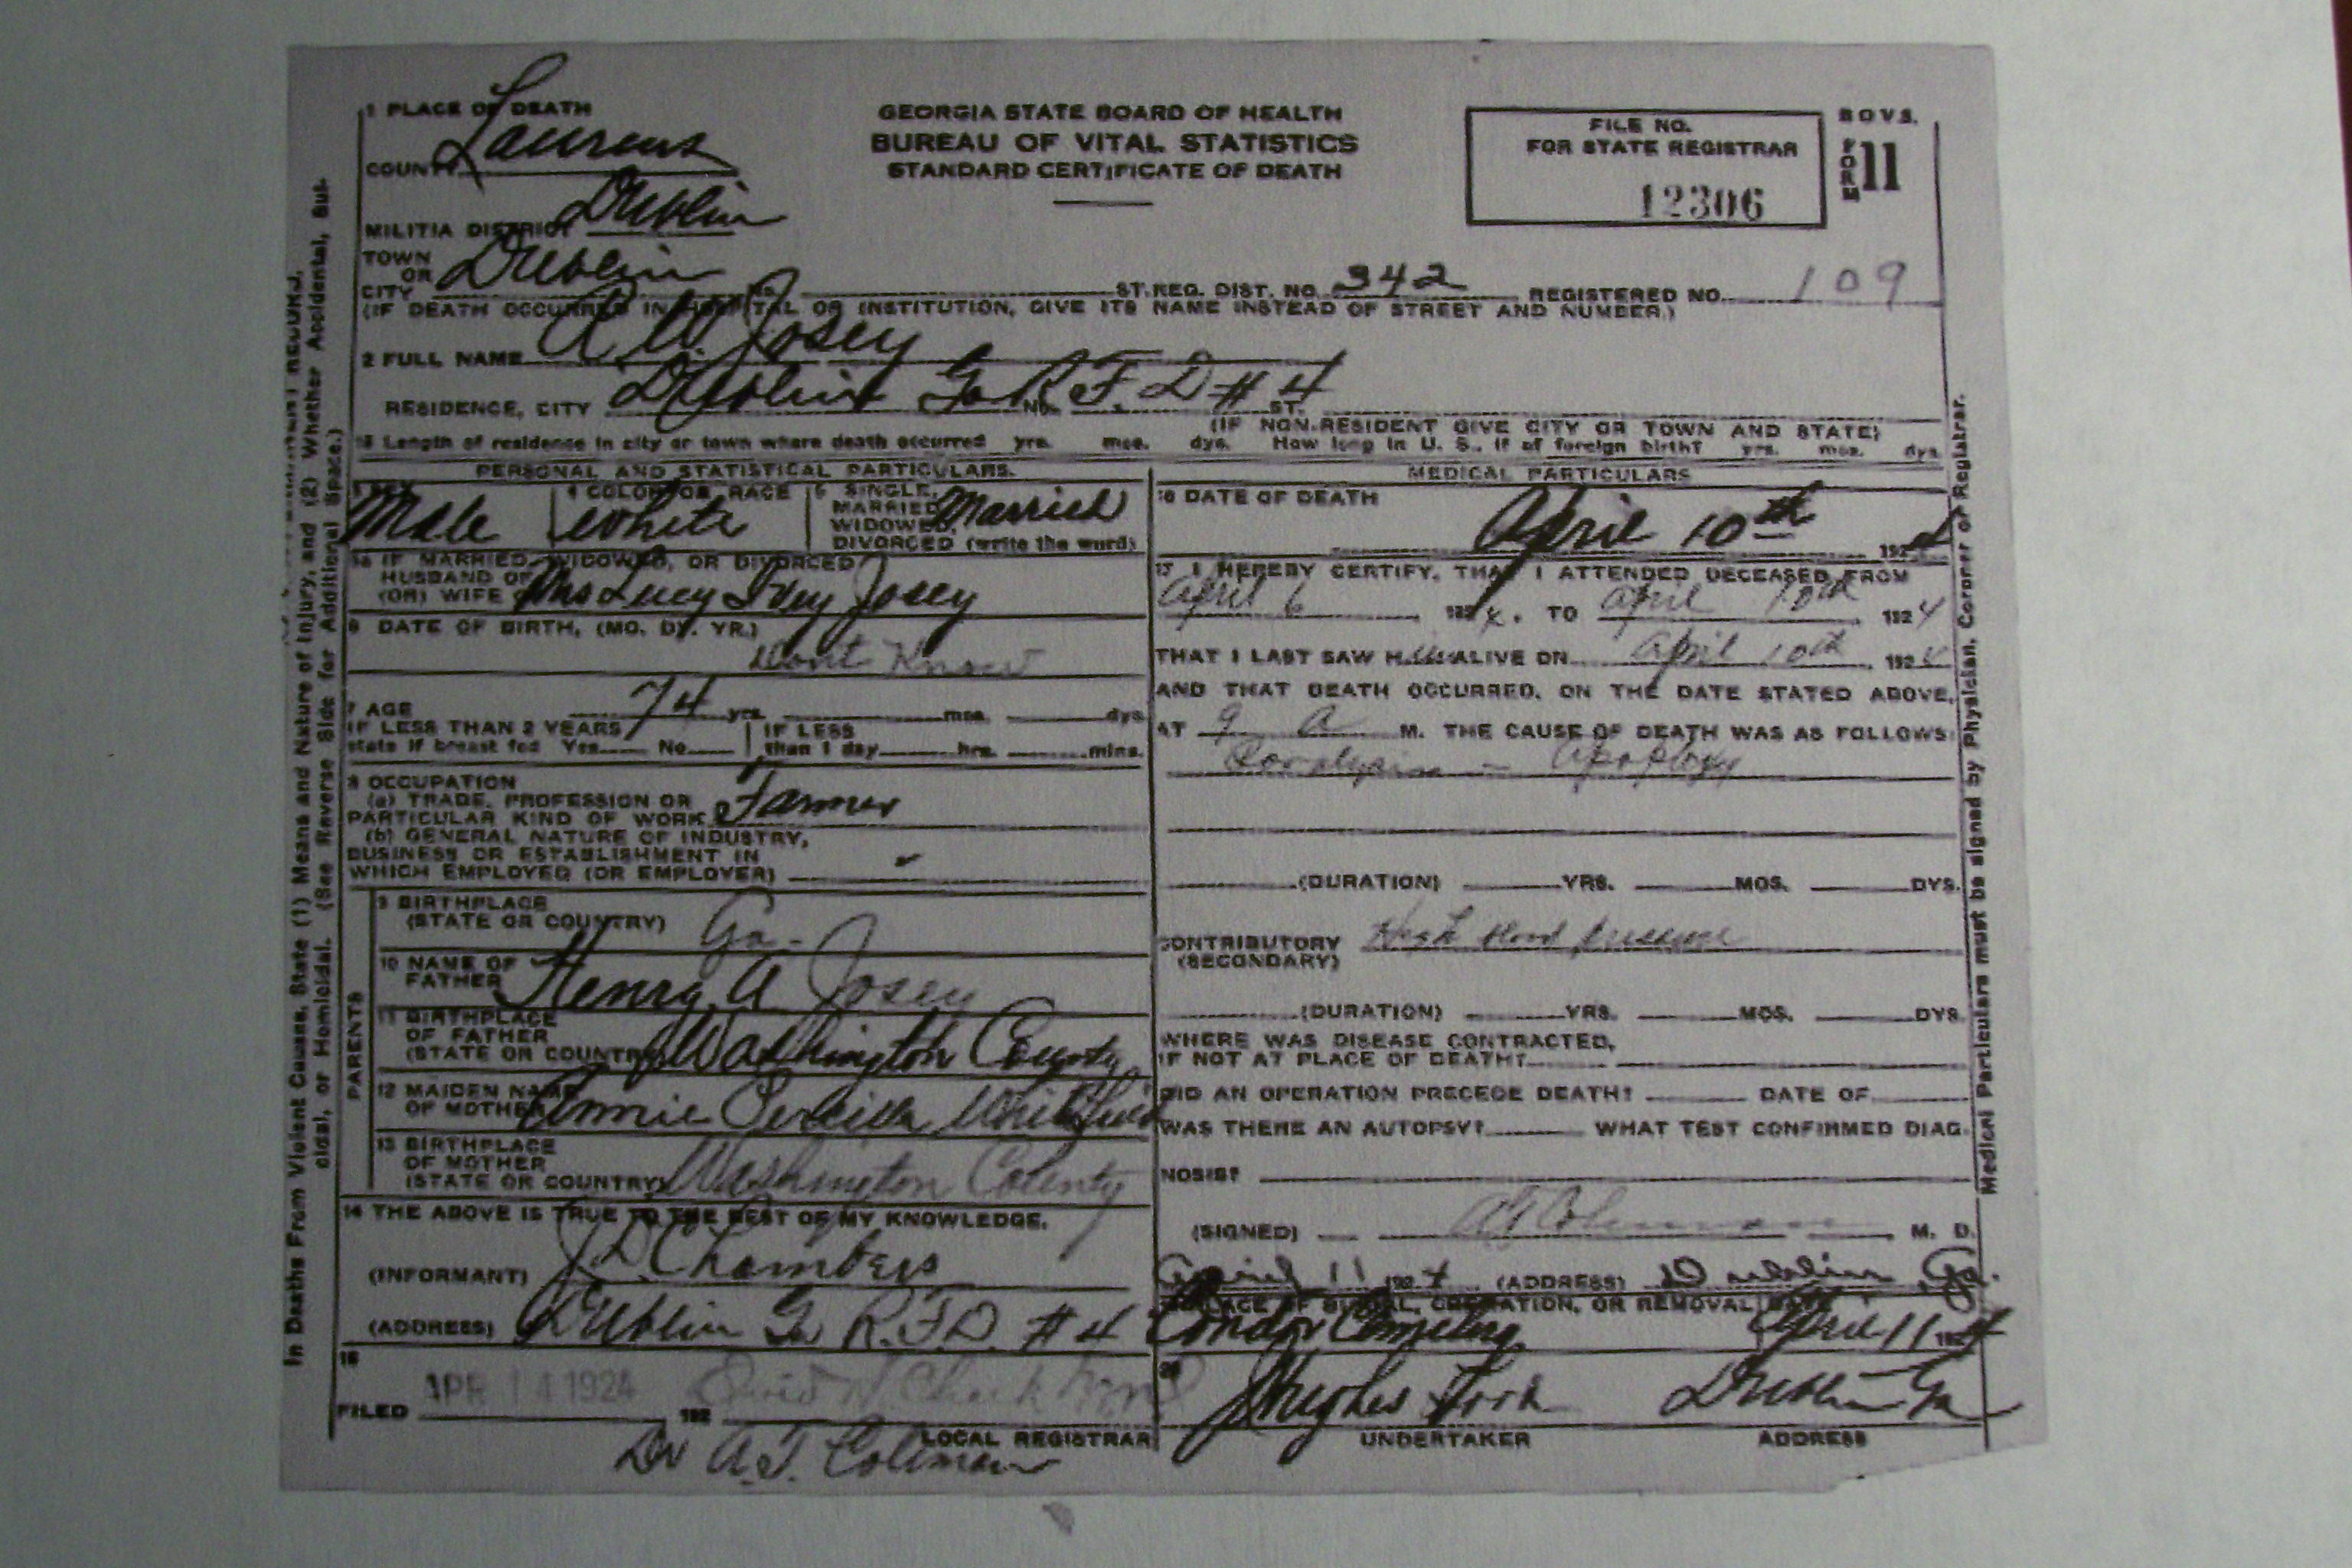 1 PLACE OF DEATH
COUNTY Laurens
MILITIA DISTRICT Dublin
TOWN OR CITY Dublin
GEORGIA STATE BOARD OF HEALTH
BUREAU OF VITAL STATISTICS
STANDARD CERTIFICATE OF DEATH
FILE NO.
FOR STATE REGISTRAR
12306
B.O.V.S.
FORM 11
ST. REG. DIST. NO. 342 REGISTERED NO. 109
(IF DEATH OCCURRED IN HOSPITAL OR INSTITUTION, GIVE ITS NAME INSTEAD OF STREET AND NUMBER.)
2 FULL NAME A W Josey
RESIDENCE, CITY Dublin Ga No. R F D # 4 ST.
(IF NON-RESIDENT GIVE CITY OR TOWN AND STATE)
15 Length of residence in city or town where death occurred yrs. mos. dys. How long in U. S., if of foreign birth? yrs. mos. dys.
PERSONAL AND STATISTICAL PARTICULARS.
Male
4 COLOR OR RACE White
5 SINGLE, MARRIED, WIDOWED, DIVORCED (write the word) Married
IF MARRIED, WIDOWED, OR DIVORCED
HUSBAND OF
(OR) WIFE OF Mrs Lucy Ivey Josey
6 DATE OF BIRTH, (MO. DY. YR.)
Dont Know
7 AGE 74 yrs. mos. dys.
IF LESS THAN 2 YEARS
state if breast fed Yes No
IF LESS
than 1 day hrs. mins.
8 OCCUPATION
(a) TRADE, PROFESSION OR
PARTICULAR KIND OF WORK Farmer
(b) GENERAL NATURE OF INDUSTRY,
BUSINESS OR ESTABLISHMENT IN
WHICH EMPLOYED (OR EMPLOYER) -
PARENTS
9 BIRTHPLACE
(STATE OR COUNTRY) Ga-
10 NAME OF
FATHER Henry A Josey
11 BIRTHPLACE
OF FATHER
(STATE OR COUNTRY) Washington County
12 MAIDEN NAME
OF MOTHER Annie
13 BIRTHPLACE
OF MOTHER
(STATE OR COUNTRY) Washington County
14 THE ABOVE IS TRUE TO THE BEST OF MY KNOWLEDGE.
(INFORMANT) J. D. Chambers
(ADDRESS) Dublin Ga R.F.D. # 4
15
FILED APR 14 1924 192
LOCAL REGISTRAR
Dr A.T. Coleman
MEDICAL PARTICULARS
16 DATE OF DEATH
April 10th 1924
17 I HEREBY CERTIFY, THAT I ATTENDED DECEASED FROM
April 6 1924. TO April 10th 1924
THAT I LAST SAW H im ALIVE ON April 10th, 1924
AND THAT DEATH OCCURRED, ON THE DATE STATED ABOVE,
AT 9 A M. THE CAUSE OF DEATH WAS AS FOLLOWS:
Paralysis - Apoplexy
(DURATION) YRS. MOS. DYS.
CONTRIBUTORY High blood pressure
(SECONDARY)
(DURATION) YRS. MOS. DYS.
WHERE WAS DISEASE CONTRACTED,
IF NOT AT PLACE OF DEATH?
DID AN OPERATION PRECEDE DEATH? DATE OF
WAS THERE AN AUTOPSY? WHAT TEST CONFIRMED DIAG-
NOSIS?
(SIGNED) A T Coleman M. D.
April 11 1924 (ADDRESS) Dublin, Ga.
PLACE OF BURIAL, CREMATION, OR REMOVAL DATE
Condor Cemetery April 11 1924
20
UNDERTAKER ADDRESS
Dublin Ga
In Deaths From Violent Causes, State (1) Means and Nature of Injury, and (2) Whether Accidental, Sui-
cidal, or Homicidal. (See Reverse Side for Additional Space.)
Medical Particulars must be signed by Physician, Coroner or Registrar.